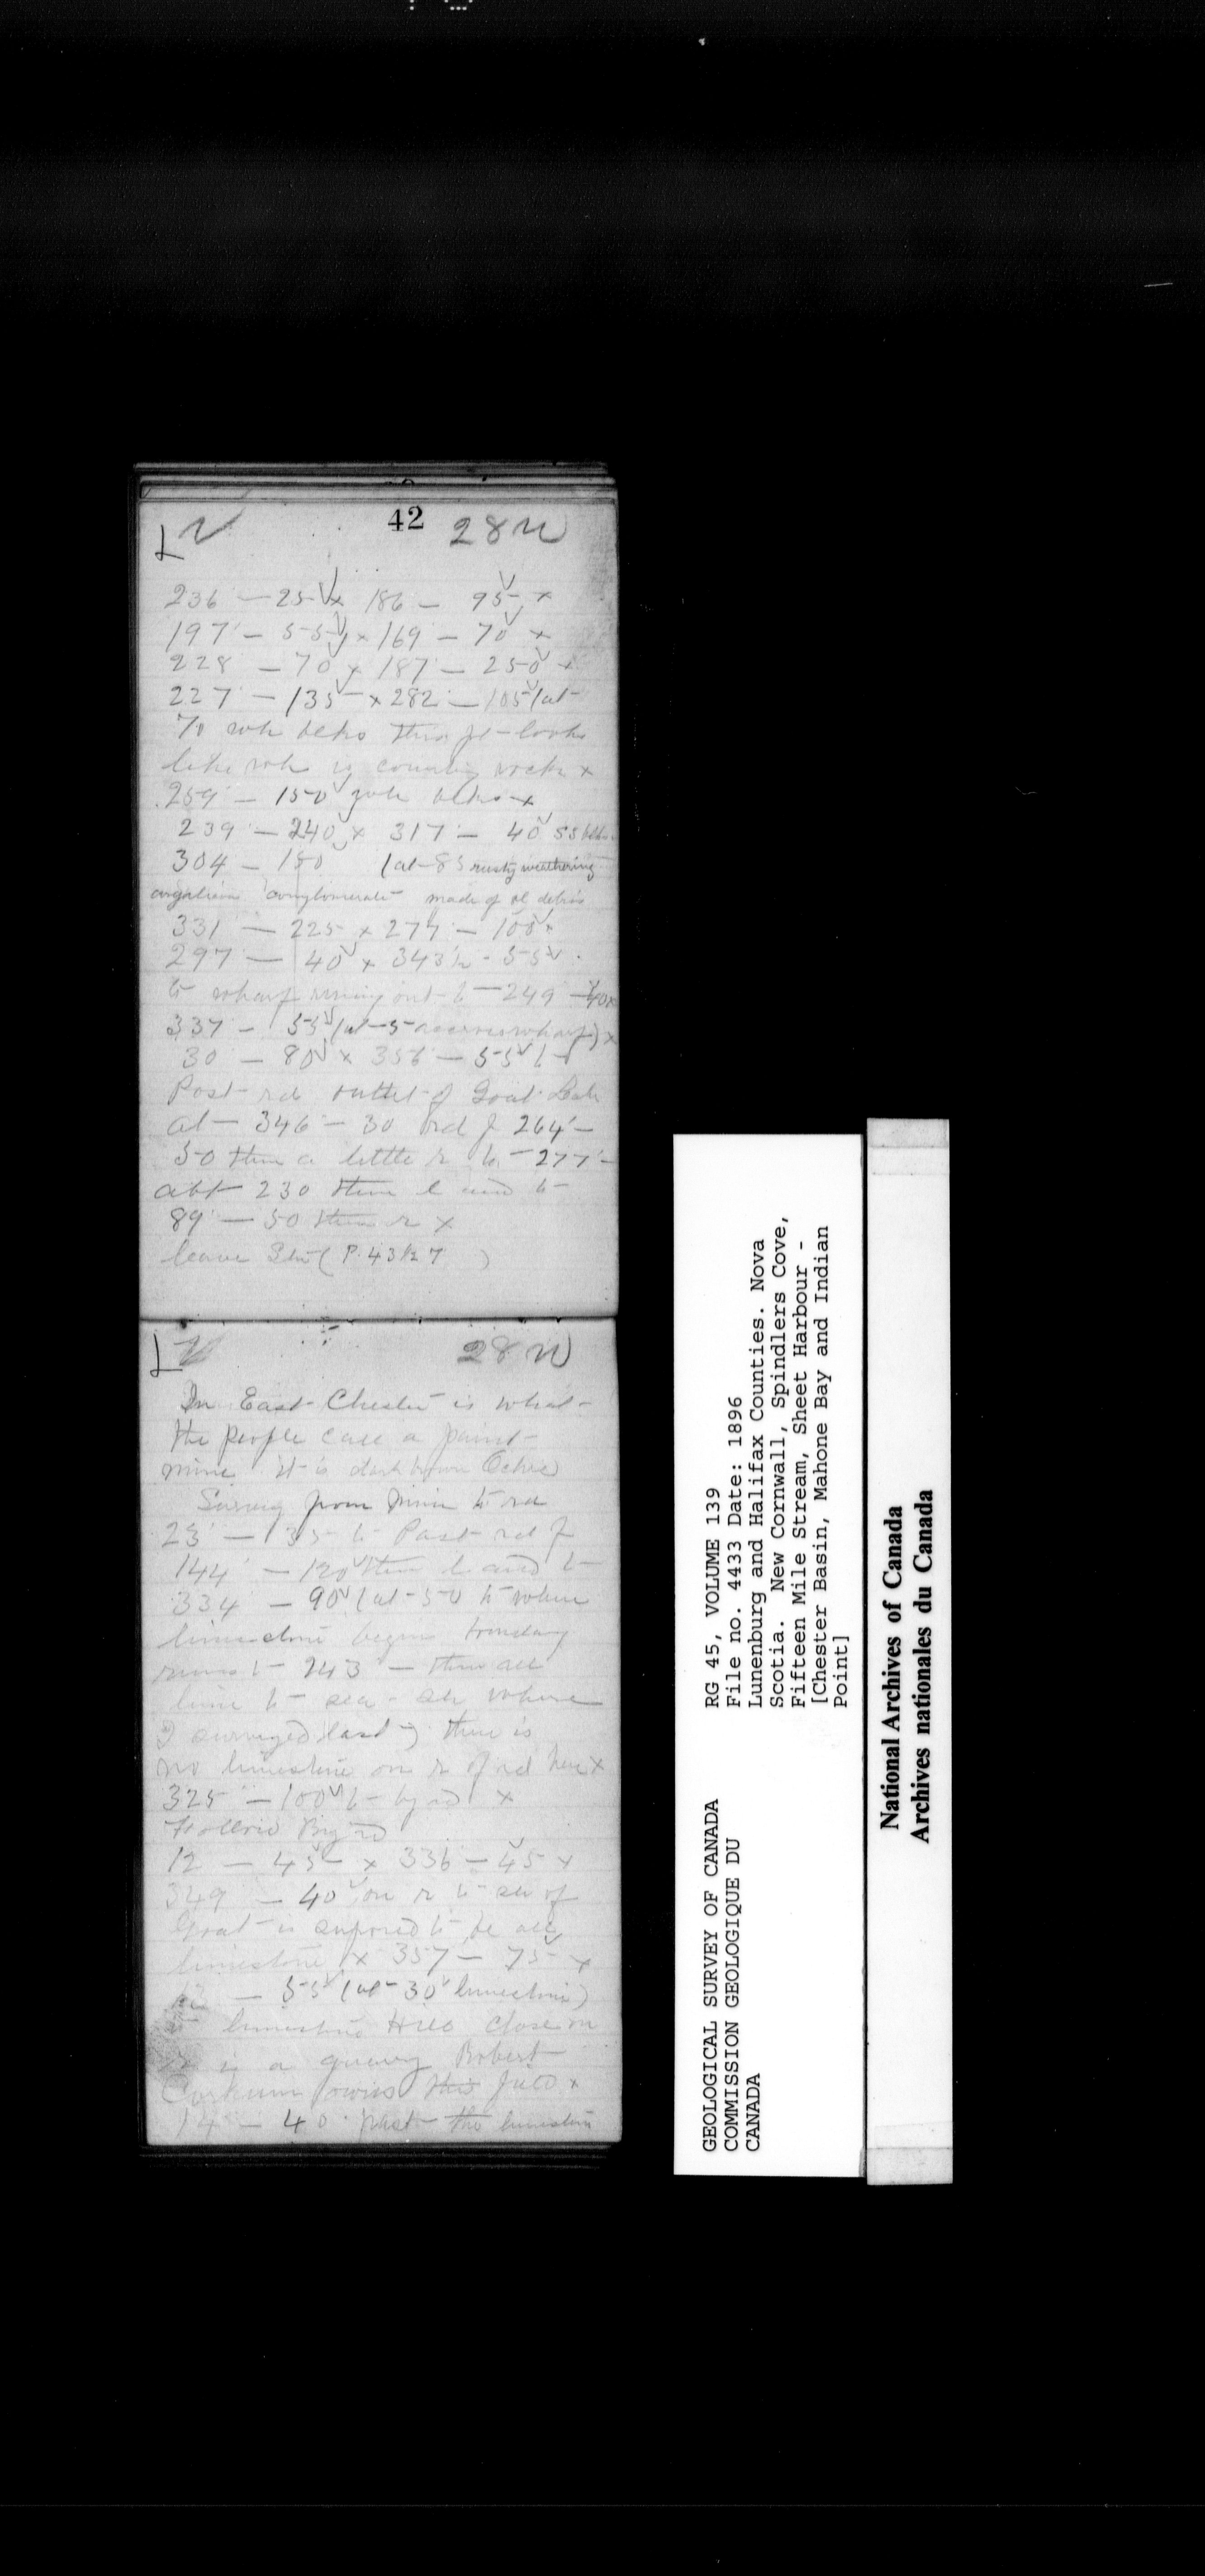 42 28 N
236 — 25 x 186 — 95 x
197 — 55 x 169 — 70 x
228 — 70 x 187 — 250 x
227 — 135 x 282 — 105 (at
70
like is country rock x
259 — 150 x
239 — 240 x 317 — 40 SS
304 — 150 (at 85 rusty weathering
conglomerate made of debris
331 — 225 x 277 — 100 x
297 — 40 x 343½ - 55
to wharf running out to 249 — 40 x
337 — 55 (at 5 across wharf) x
30 — 80 x 356 — 55 to
Post rd outlet of Goat Lake
at 346 — 30 rd f 264 —
50 then a little r to 277 —
abt 230 then l and to
89 — 50 then r x
leave (P. 43 7 )
28 N
In East Chester is what
the people call a paint
mine it is dark brown Ochre
Survey from mine to rd
23 — 135 to Post rd f
144 — 120 then l and to
334 — 90 (at 50 to where
limestone begins boundary
runs to 243 — then all
lime to sea - where
I surveyed last then is
no limestone on r of rd here x
325 — 100 to by rd x
Follow By rd
12 — 45 x 336 — 45 x
349 — 40 on r to of
Goat is supposed to be all
limestone x 357 — 75 x
— 55 (at 30 limestone)
limestone Hill close on
r is a quarry Robert
Corkum owns this x
14 — 40 past the limestone
GEOLOGICAL SURVEY OF CANADA
COMMISSION GEOLOGIQUE DU
CANADA
RG 45, VOLUME 139
File no. 4433 Date: 1896
Lunenburg and Halifax Counties. Nova
Scotia. New Cornwall, Spindlers Cove,
Fifteen Mile Stream, Sheet Harbour -
[Chester Basin, Mahone Bay and Indian
Point]
National Archives of Canada
Archives nationales du Canada